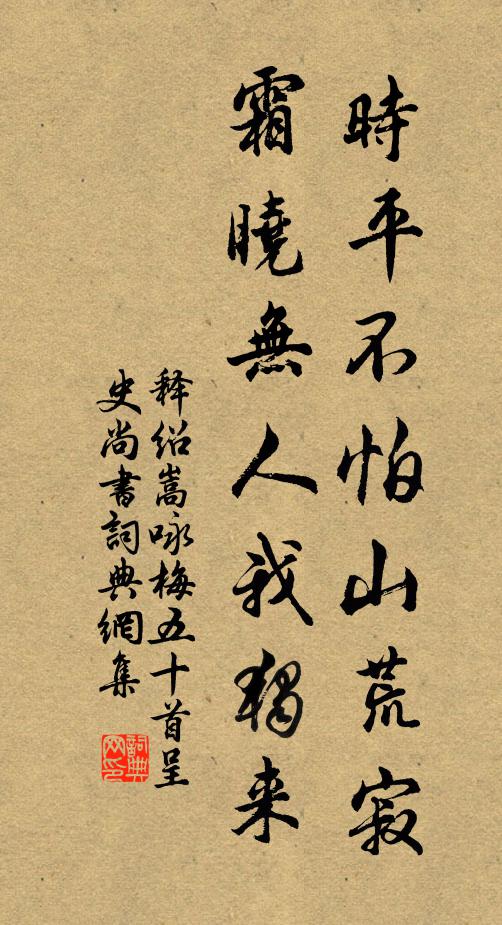 時平不怕山荒寂
霜曉無人我獨来
释绍嵩咏梅五十首呈
史尚書詞典網集
詞典
网印